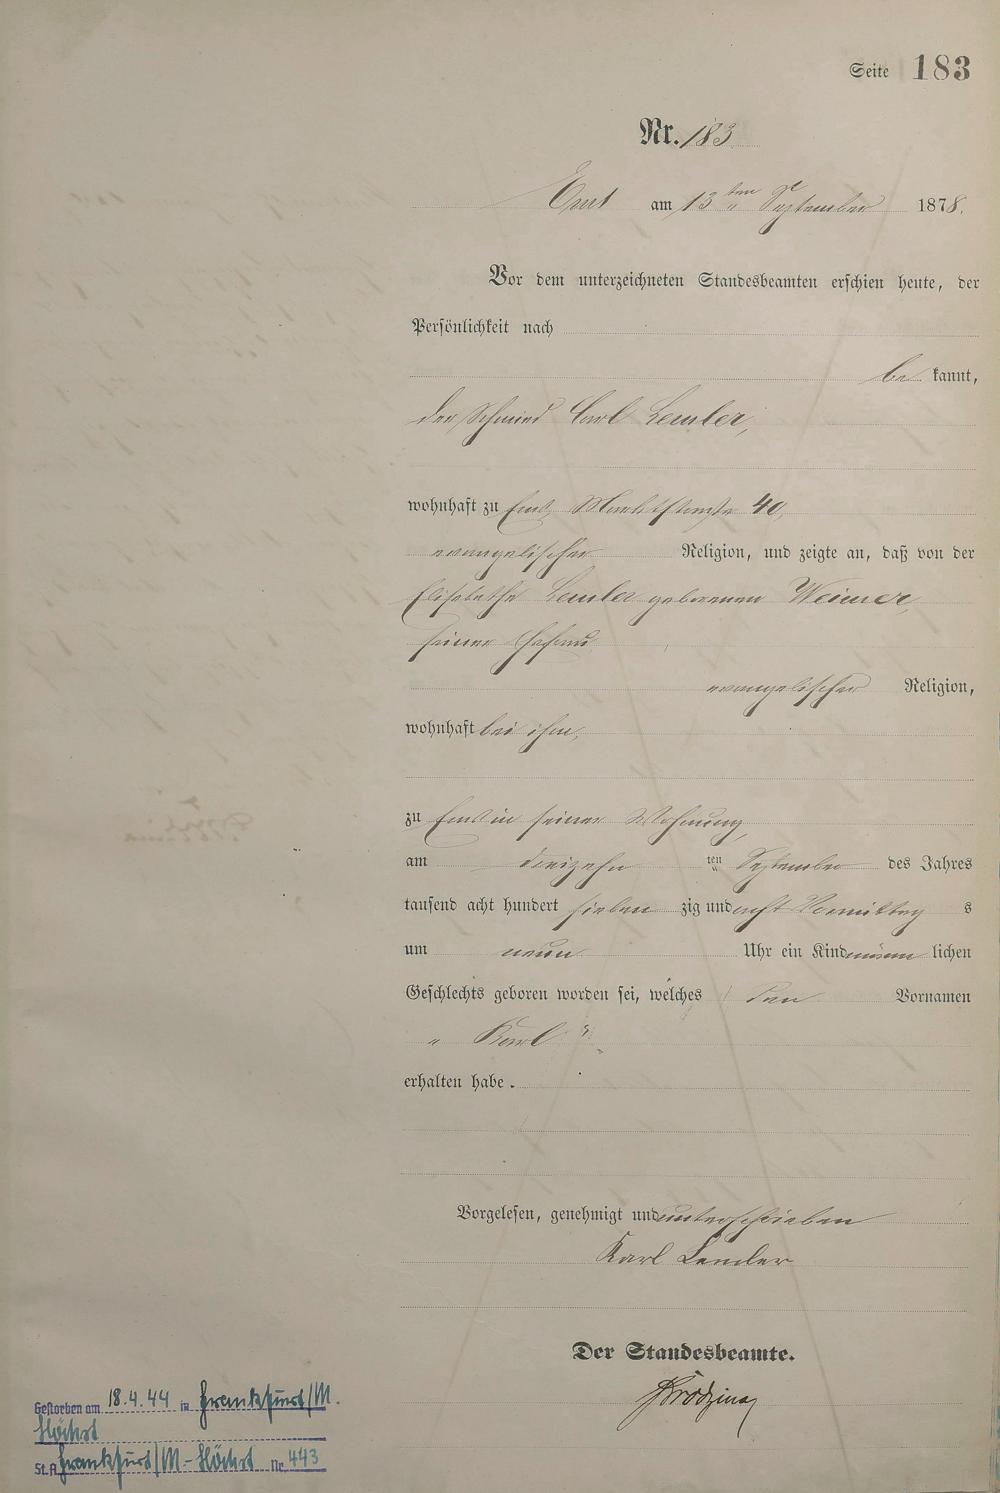 Seite 183
Nr. 183
Ems am 13ten September 1878.
Vor dem unterzeichneten Standesbeamten erschien heute, der
Persönlichkeit nach
be kannt,
der Schmied Carl Lemler,
wohnhaft zu Ems, Marktstraße 40,
evangelischer Religion, und zeigte an, daß von der
Elisabethe Lemler geborenen Weimer,
seiner Ehefrau
evangelischer Religion,
wohnhaft bei ihm,
zu Ems in seiner Wohnung,
am dreizehn ten September des Jahres
tausend acht hundert sieben zig und acht Vormittag s
um neun Uhr ein Kind männ lichen
Geschlechts geboren worden sei, welches den Vornamen
„ Karl "
erhalten habe.
Vorgelesen, genehmigt und unterschrieben
Karl Lemler
Der Standesbeamte.
Gestorben am 18.4.44 in Frankfurt/M.
Höchst
St.A. Frankfurt/M.-Höchst Nr. 443